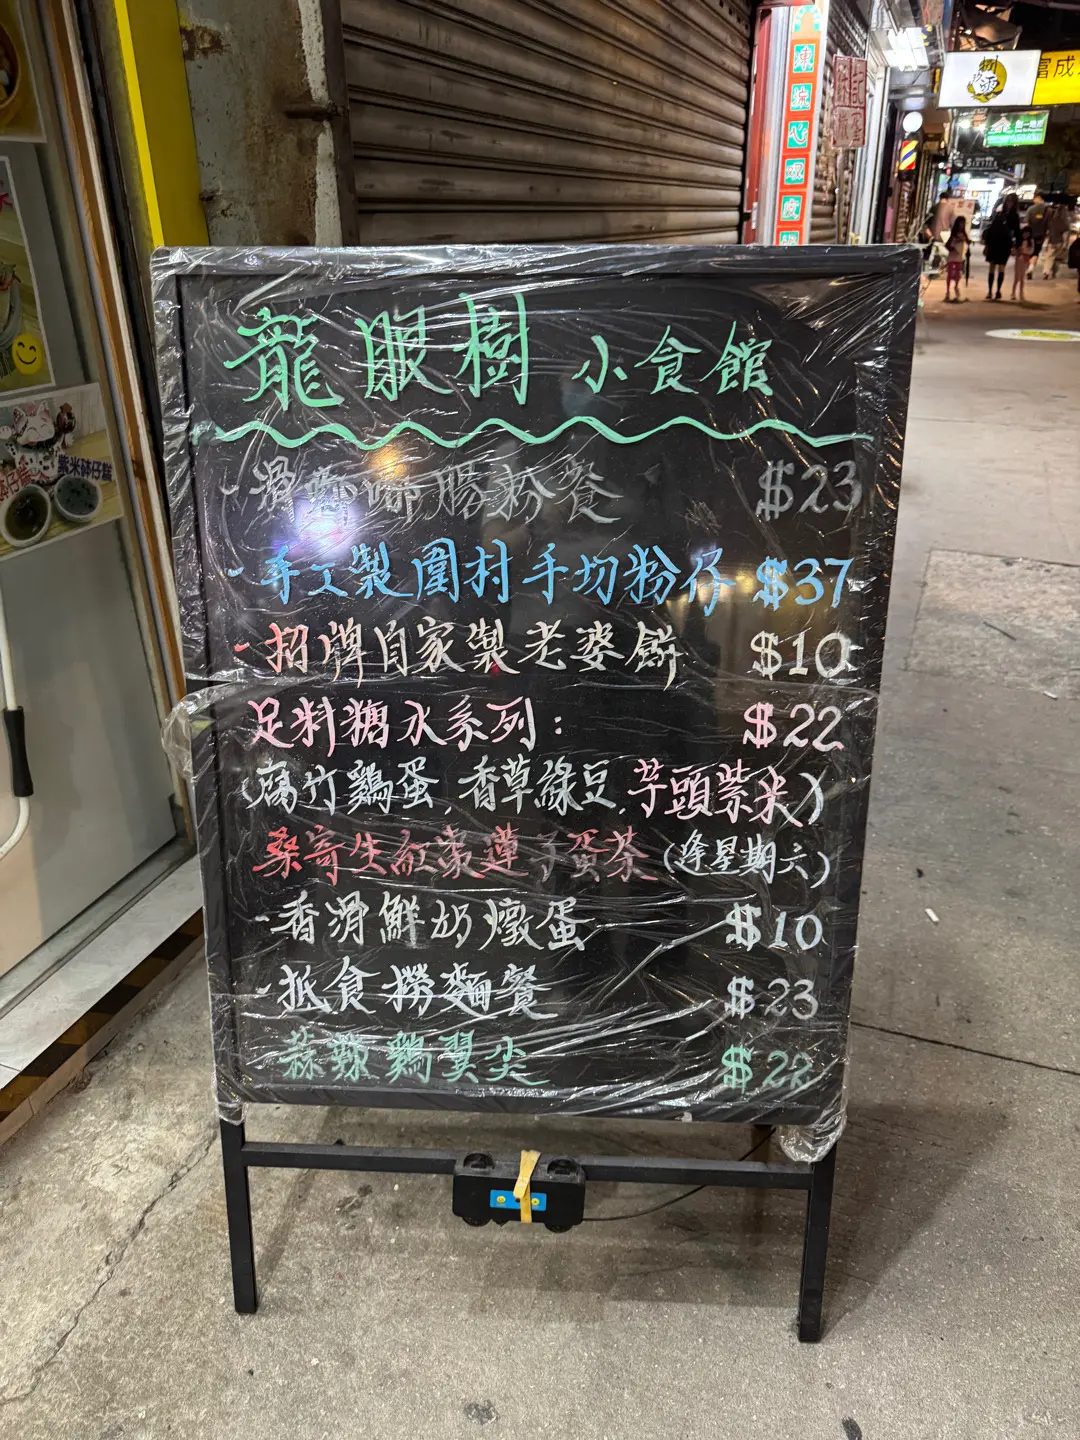 龍眼樹 小食館
- 滑嘟嘟腸粉餐 $23
- 手工製圍村手切粉仔 $37
- 招牌自家製老婆餅 $10
足料糖水系列: $22
(腐竹鷄蛋.香草綠豆.芋頭紫米)
桑寄生紅棗蓮子蛋茶(逢星期六)
- 香滑鮮奶燉蛋 $10
- 抵食撈麵餐 $23
蒜辣鷄翼尖 $22
紫米砵仔糕
富成